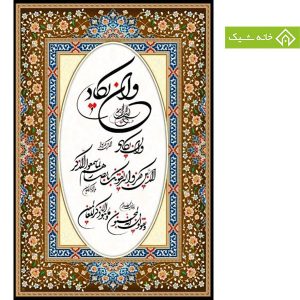 خانه شیک
وان یکاد
وان یکاد
الذین کفروا لیزلقونک بابصارهم لما سمعوا الذکر
و یقولون انه لمجنون
و ما هو الا ذکر للعالمین